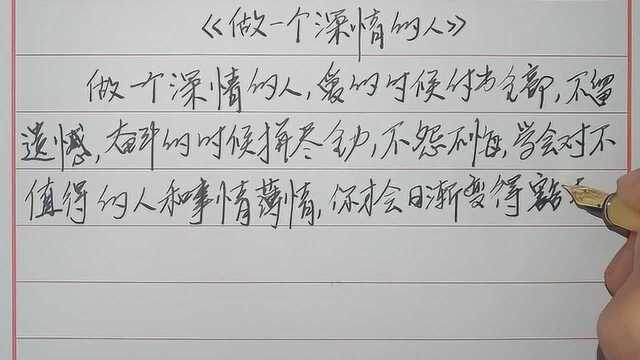 《做一个深情的人》
做一个深情的人，爱的时候付出全部，不留
遗憾，奋斗的时候拼尽全力，不怨不悔，学会对不
值得的人和事情薄情，你才会日渐变得